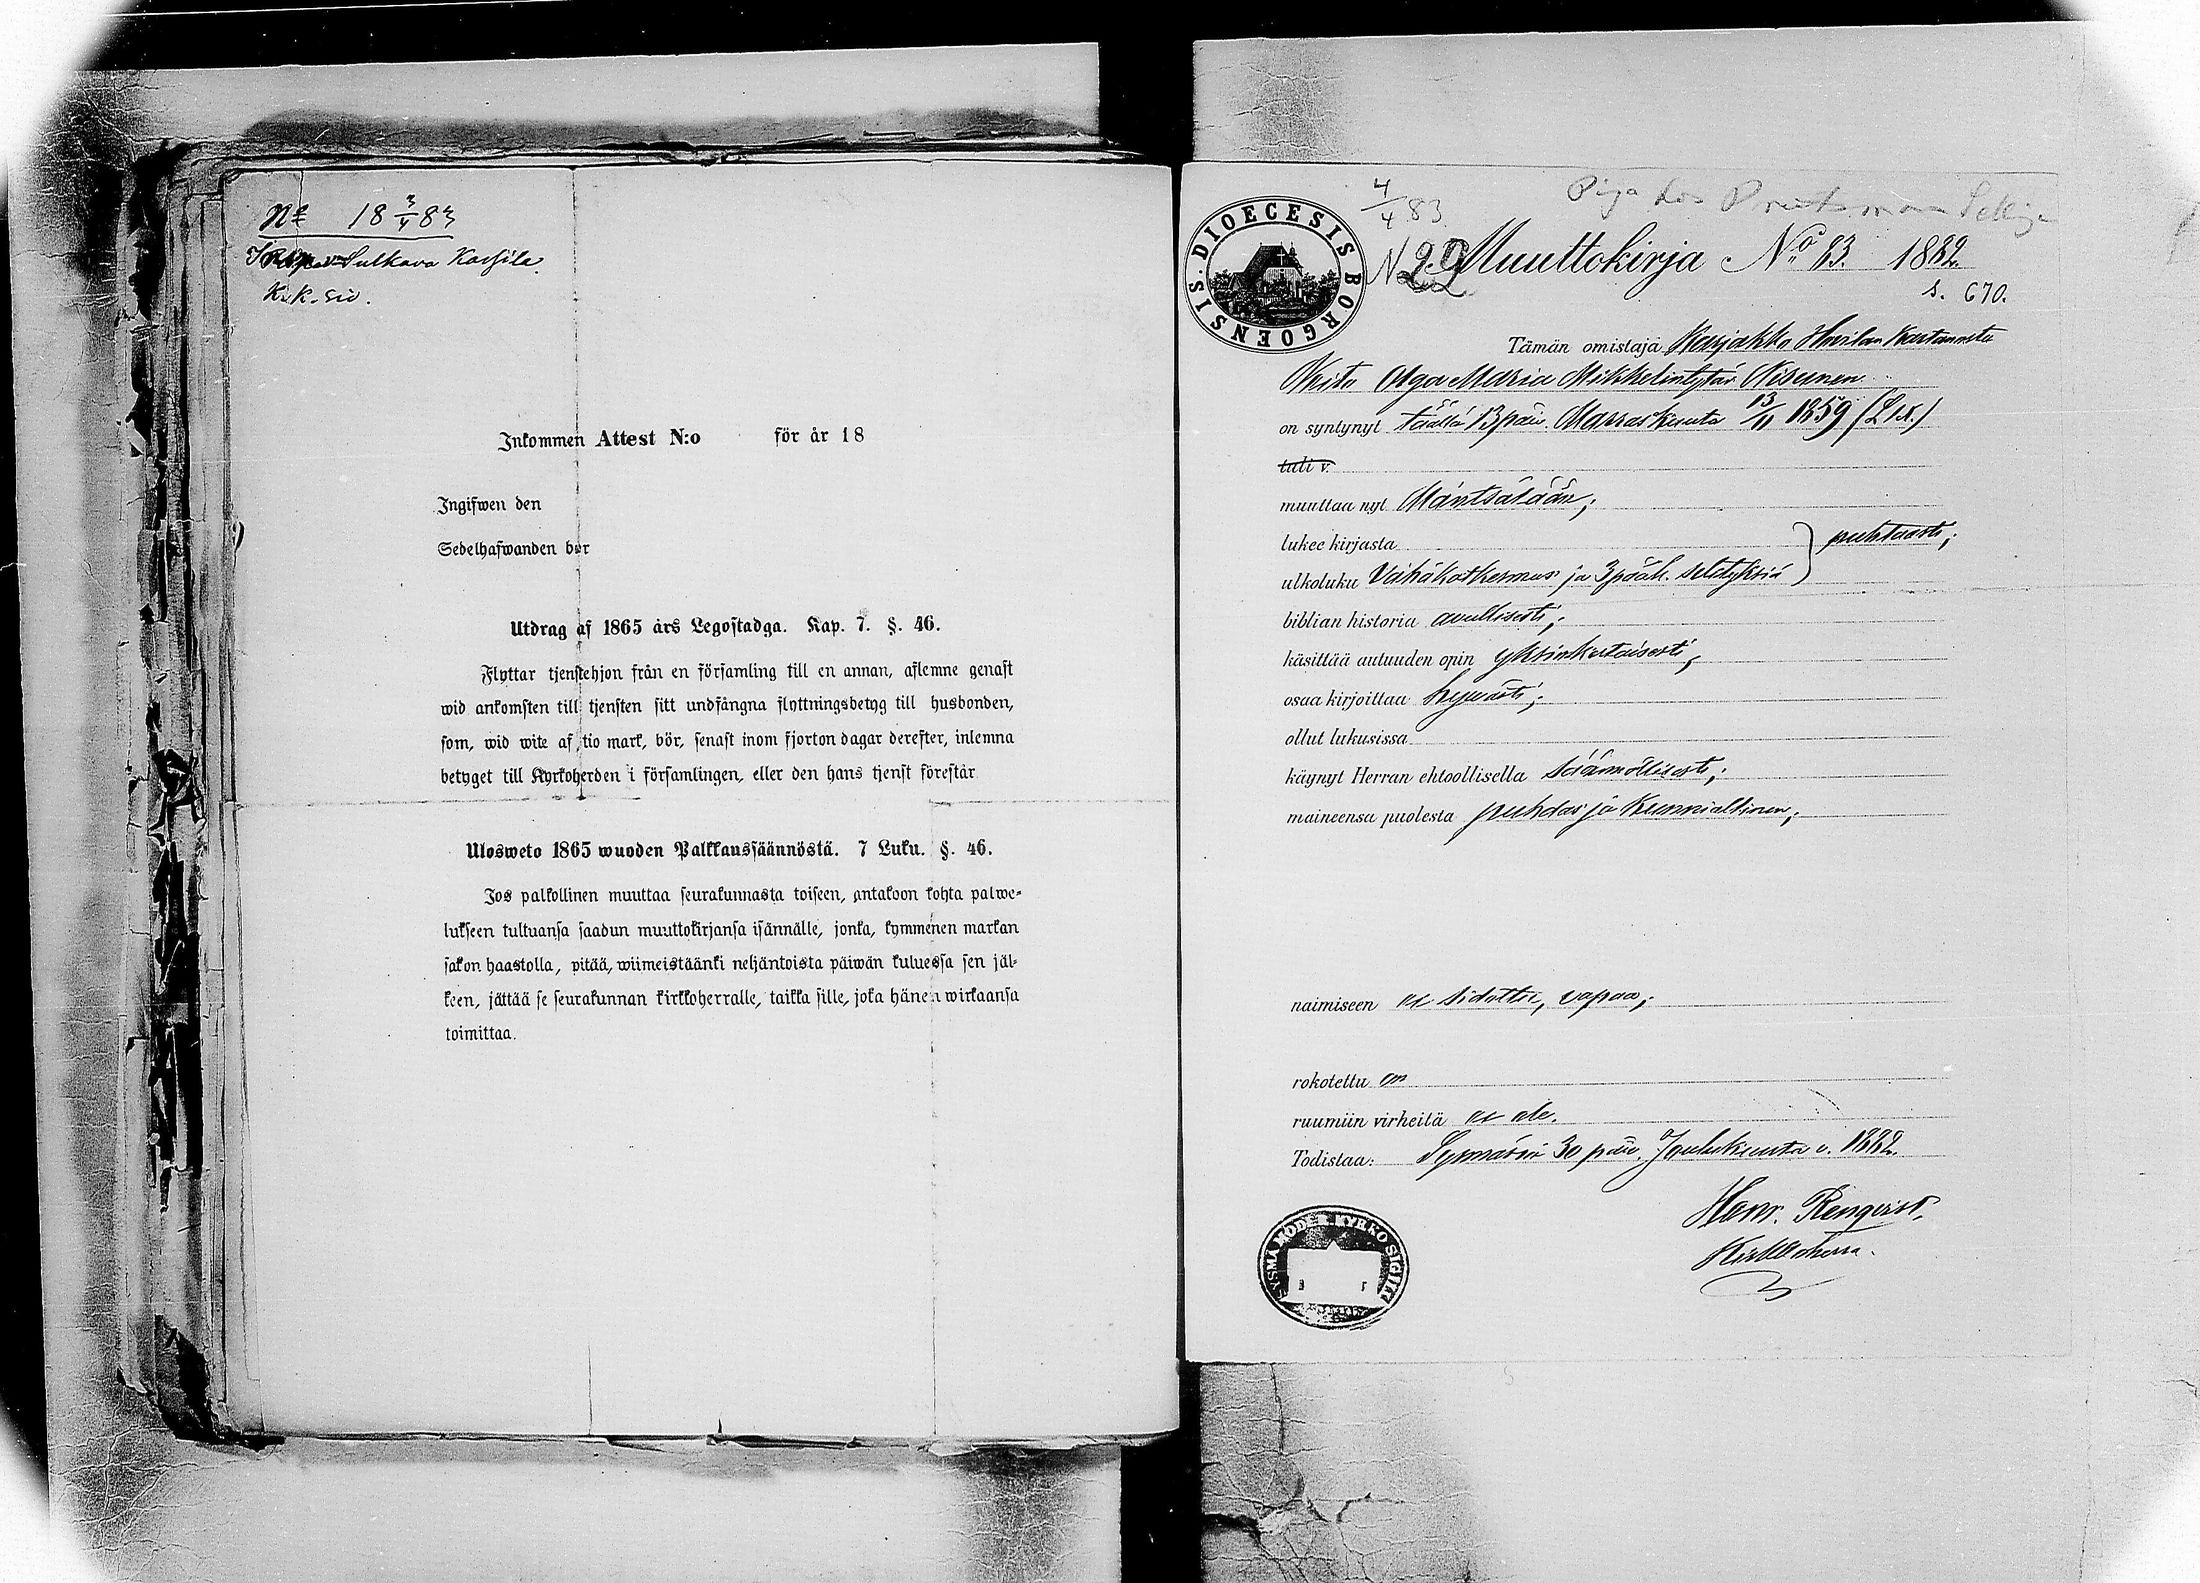 No 18 3/4 83
Sulkava Karsila
K.k. siv.
Inkommen Attest N:o för år 18
Ingifwen den
Sedelhafwanden bör
Utdrag af 1865 års Legostadga. Kap. 7. §. 46.
Flyttar tjenstehjon från en församling till en annan, aflemne genast
wid ankomsten till tjensten sitt undfångna flyttningsbetyg till husbonden,
som, wid wite af tio mark, bör, senast inom fjorton dagar derefter, inlemna
betyget till Kyrkoherden i församlingen, eller den hans tjenst förestår
Ulosweto 1865 wuoden Palkkaussäännöstä. 7 Luku. §. 46.
Jos palkollinen muuttaa seurakunnasta toiseen, antakoon kohta palwe-
lukseen tultuansa saadun muuttokirjansa isännälle, jonka, kymmenen markan
sakon haastolla, pitää, wiimeistäänki neljäntoista päiwän kuluessa sen jäl-
keen, jättää se seurakunnan kirkkoherralle, taikka sille, joka hänen wirkaansa
toimittaa.
DIOECESIS BORGOENSIS.
4/4 83
Piga hos
N 22
Muuttokirja No 83. 1882.
s. 670.
Tämän omistaja Karjakko Hovilan Kartanosta
Olga Maria Mikkelintytär
on syntynyt täällä 13 päiv. Marraskuuta 13/11 1859 (L IX.)
tuli v.
muuttaa nyt Mäntsälään;
lukee kirjasta puhtaasti;
ulkoluku Vähäkatkesmus ja 3 pääk. selityksiä
biblian historia avullisesti;
käsittää autuuden opin yksinkertaisesti,
osaa kirjoittaa hyvästi;
ollut lukusissa
käynyt Herran ehtoollisella säännöllisesti;
maineensa puolesta puhdas ja kunniallinen;
naimiseen ei sidottu, vapaa;
rokotettu on
ruumiin virheitä ei ole.
Todistaa: Sysmässä 30 päiv. Joulukuuta v. 1882.
Henr. Renqvist,
Kirkkoherra.
SYSMÄ MODER KYRKO SIGILL